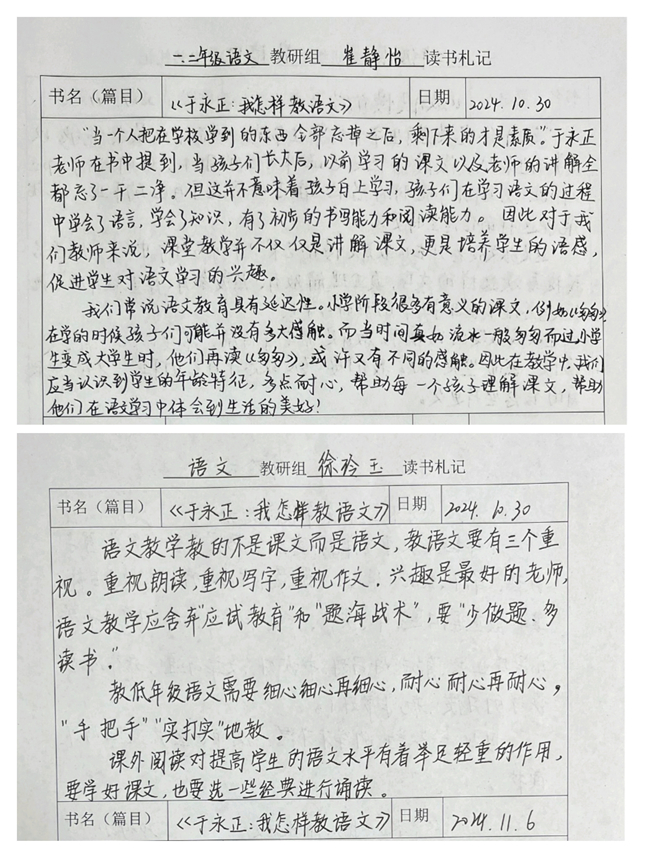 一.二年级语文 教研组 崔静怡 读书札记
书名（篇目） 《于永正:我怎样教语文》 日期 2024.10.30
"当一个人把在学校学到的东西全部忘掉之后，剩下来的才是素质"。于永正
老师在书中提到，当孩子们长大后，以前学习的课文以及老师的讲解全
都忘了一干二净。但这并不意味着孩子白上学习，孩子们在学习语文的过程
中学会了语言，学会了知识，有了初步的书写能力和阅读能力。因此对于我
们教师来说，课堂教学并不仅仅是讲解课文，更是培养学生的语感，
促进学生对语文学习的兴趣。
我们常说语文教育具有延迟性。小学阶段很多有意义的课文，例如《匆匆》
在学的时候孩子们可能并没有多大感触。而当时间真如流水一般匆匆而过，小学
生变成大学生时，他们再读《匆匆》，或许又有不同的感触。因此在教学中，我们
应当认识到学生的年龄特征，多点耐心，帮助每一个孩子理解课文，帮助
他们在语文学习中体会到生活的美好！
语文 教研组 徐玲玉 读书札记
书名（篇目） 《于永正:我怎样教语文》 日期 2024.10.30
语文教学教的不是课文而是语文，教语文要有三个重
视。重视朗读，重视写字，重视作文．兴趣是最好的老师，
语文教学应舍弃"应试教育"和"题海战术"，要"少做题、多
读书．"
教低年级语文需要细心细心再细心，耐心耐心再耐心，
"手把手""实打实"地教。
课外阅读对提高学生的语文水平有着举足轻重的作用，
要学好课文，也要选一些经典进行诵读。
书名（篇目） 《于永正:我怎样教语文》 日期 2024.11.6